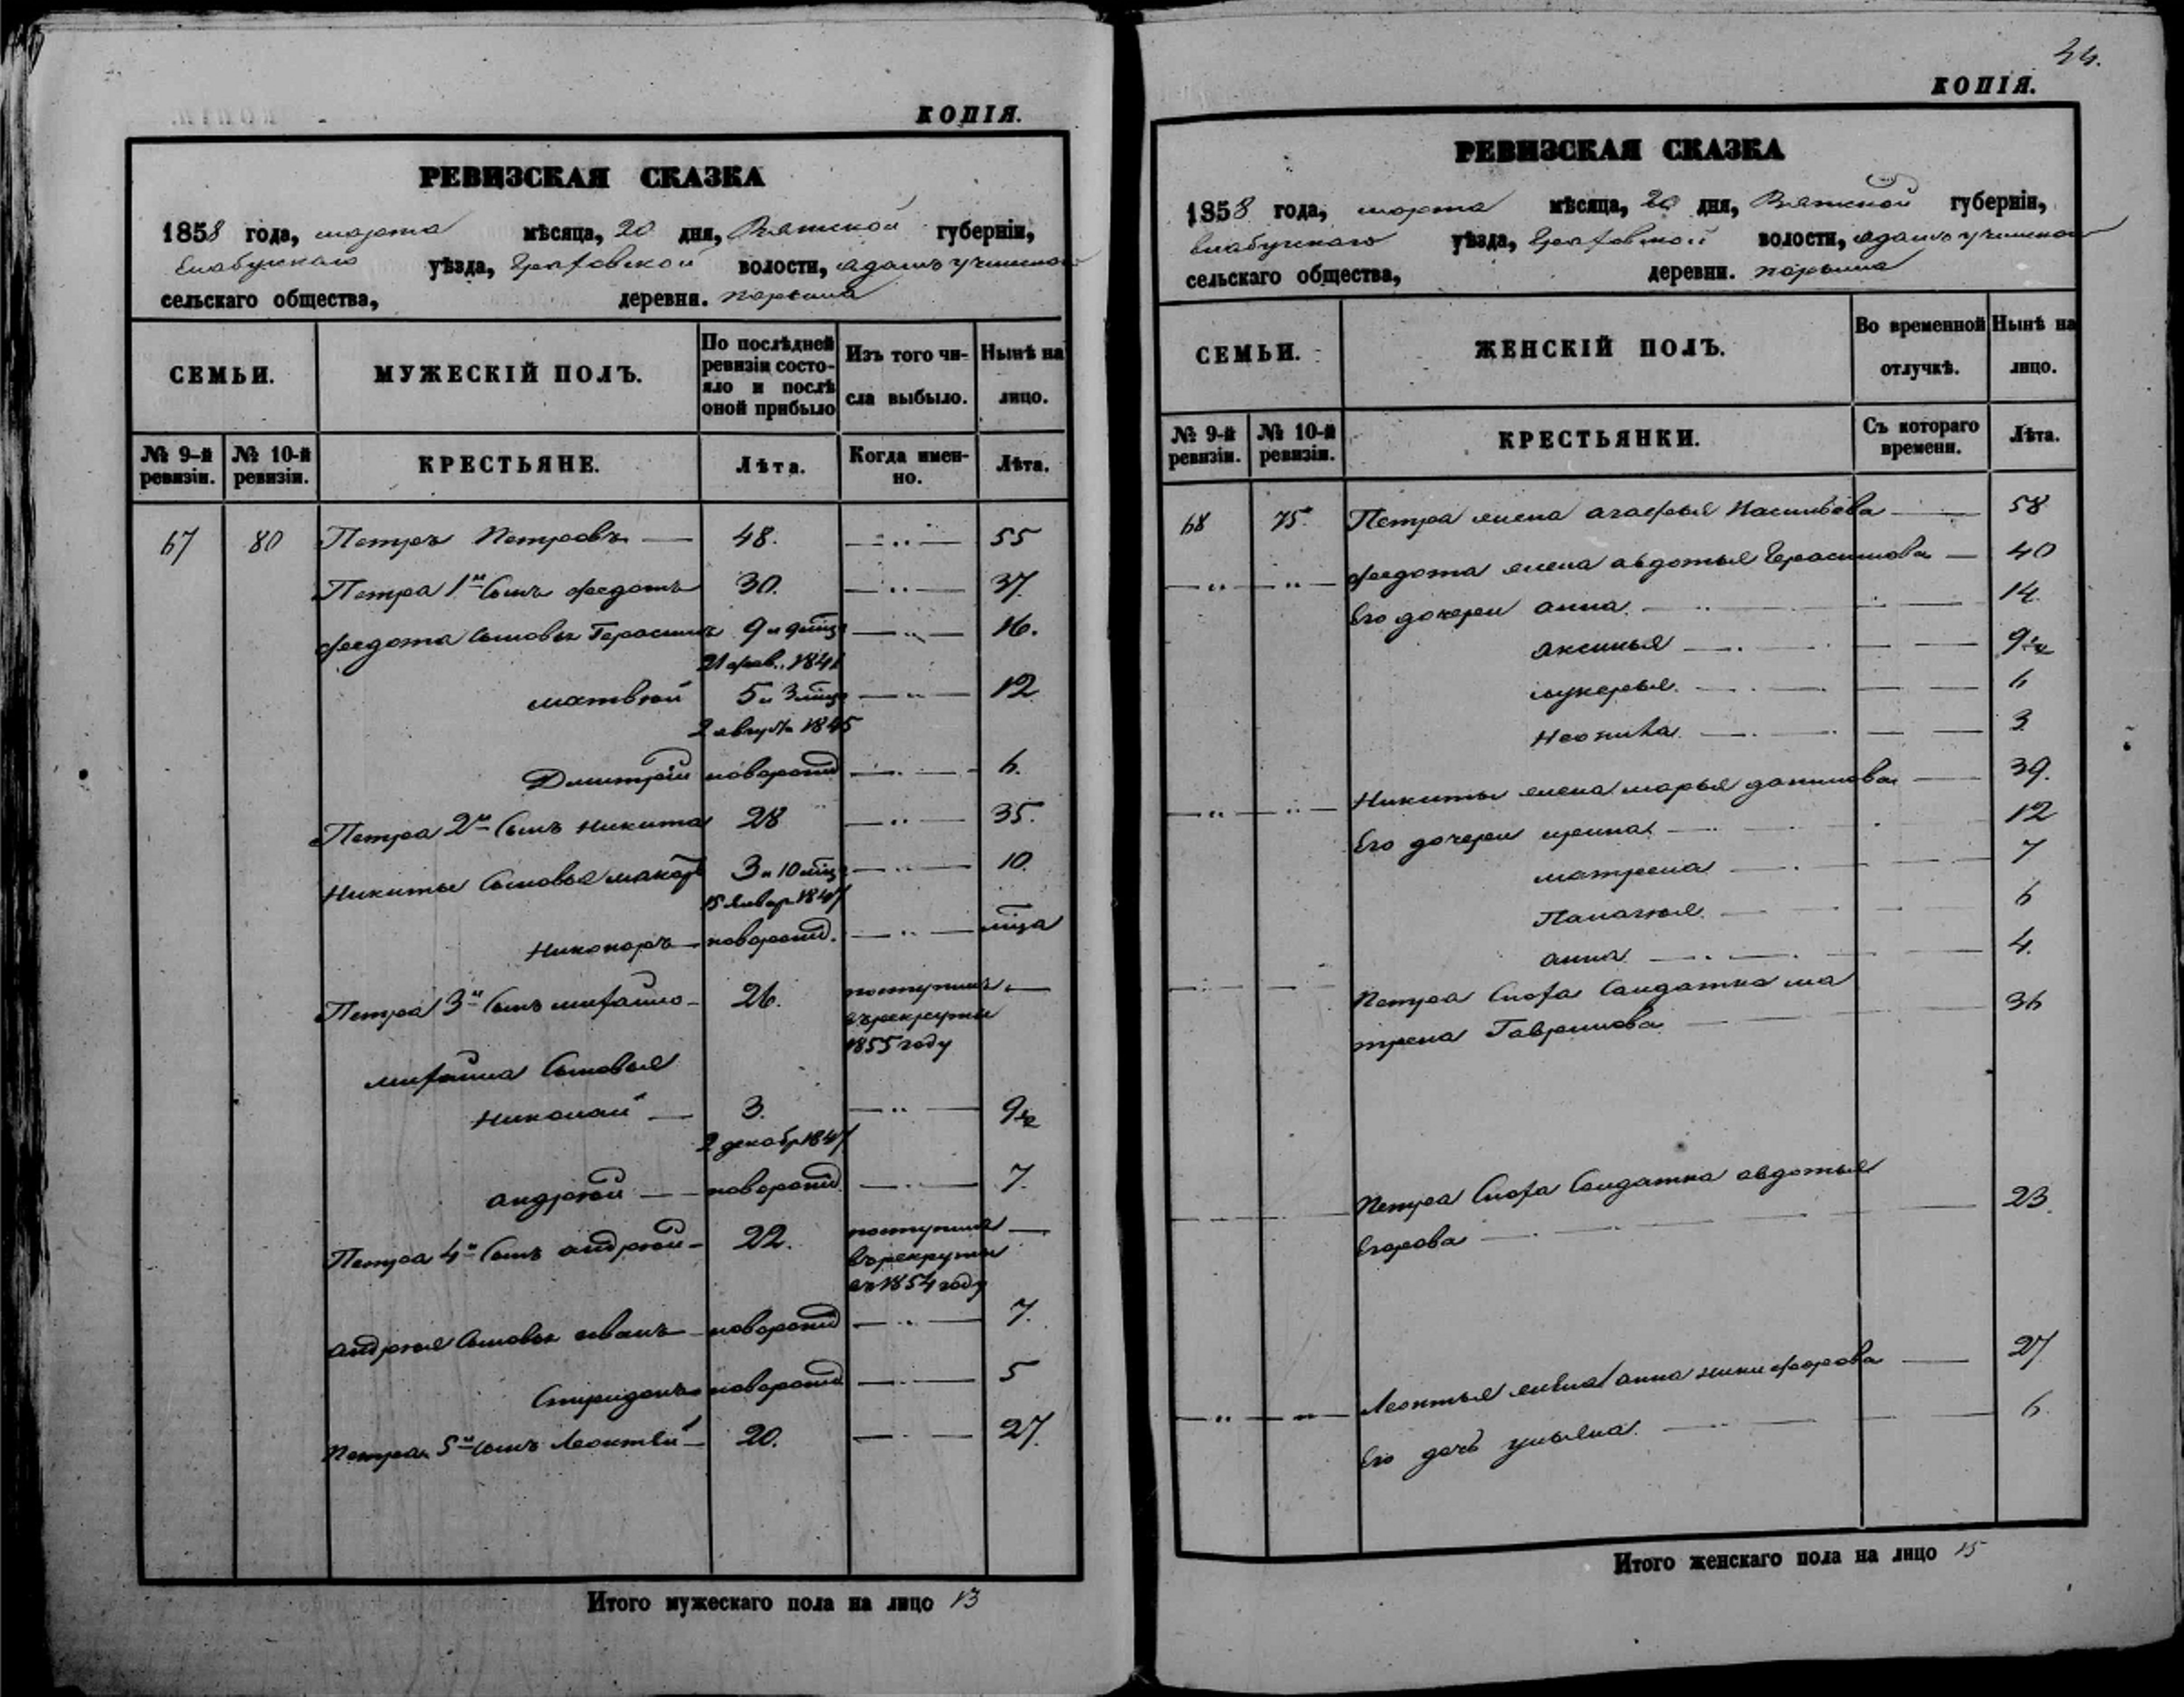 КОПІЯ.
РЕВИЗСКАЯ СКАЗКА
1858 года, марта мѣсяца, 20 дня, Вятской губерніи,
Елабужскаго уѣзда, Граховской волости,
сельскаго общества, деревни.
СЕМЬИ. МУЖЕСКІЙ ПОЛЪ. По послѣдней ревизіи состояло и послѣ оной прибыло Изъ того числа выбыло. Нынѣ на лицо.
№ 9-й ревизіи. № 10-й ревизіи. КРЕСТЬЯНЕ. Лѣта. Когда именно. Лѣта.
67 80 Петръ Петровъ 48. 55
Петра 1й сынъ федотъ 30. 37.
федота сыновья Герасимъ 9 и 9 мѣц 16.
21 фев.
матвѣй 5 и 3 мѣц 12
2 август 1845
Дмитрій новорожд 6.
Петра 2й сынъ никита 28 35.
Никиты сыновья макаръ 3 и 10 мѣц 10.
15 январ 1847
Никоноръ новорожд. мѣца
Петра 3й сынъ михайло 26. поступилъ
въ рекруты
1855 году
михайла сыновья
николай 3. 9 1/2
2 декабр 1847
андрѣй новорожд 7.
Петра 4й сынъ андрѣй 22. поступилъ
въ рекруты
въ 1854 году
андрѣя сыновья иванъ новорожд 7.
Спиридонъ новорожд 5
Петра 5й сынъ Леонтѣй 20. 27.
Итого мужескаго пола на лицо 13
34.
КОПІЯ.
РЕВИЗСКАЯ СКАЗКА
1858 года, марта мѣсяца, 20 дня, Вятской губерніи,
Елабужскаго уѣзда, Граховской волости,
сельскаго общества, деревни.
СЕМЬИ. ЖЕНСКІЙ ПОЛЪ. Во временной отлучкѣ. Нынѣ на лицо.
№ 9-й ревизіи. № 10-й ревизіи. КРЕСТЬЯНКИ. Съ котораго времени. Лѣта.
68 75 Петра жена агафья 58
федота жена авдотья Герасимова 40
Его дочери анна 14
аксинья 9 1/2
лукерья 6
3
Никиты жена марья данилова 39.
Его дочери ирина 12
матрена 7
Палагѣя 6
анна 4.
Петра сноха солдатка ма
трена Гаврилова 36
Петра сноха солдатка авдотья
Егорова 23
Леонтья жена анна никифорова 27
Его дочь ульяна 6
Итого женскаго пола на лицо 15